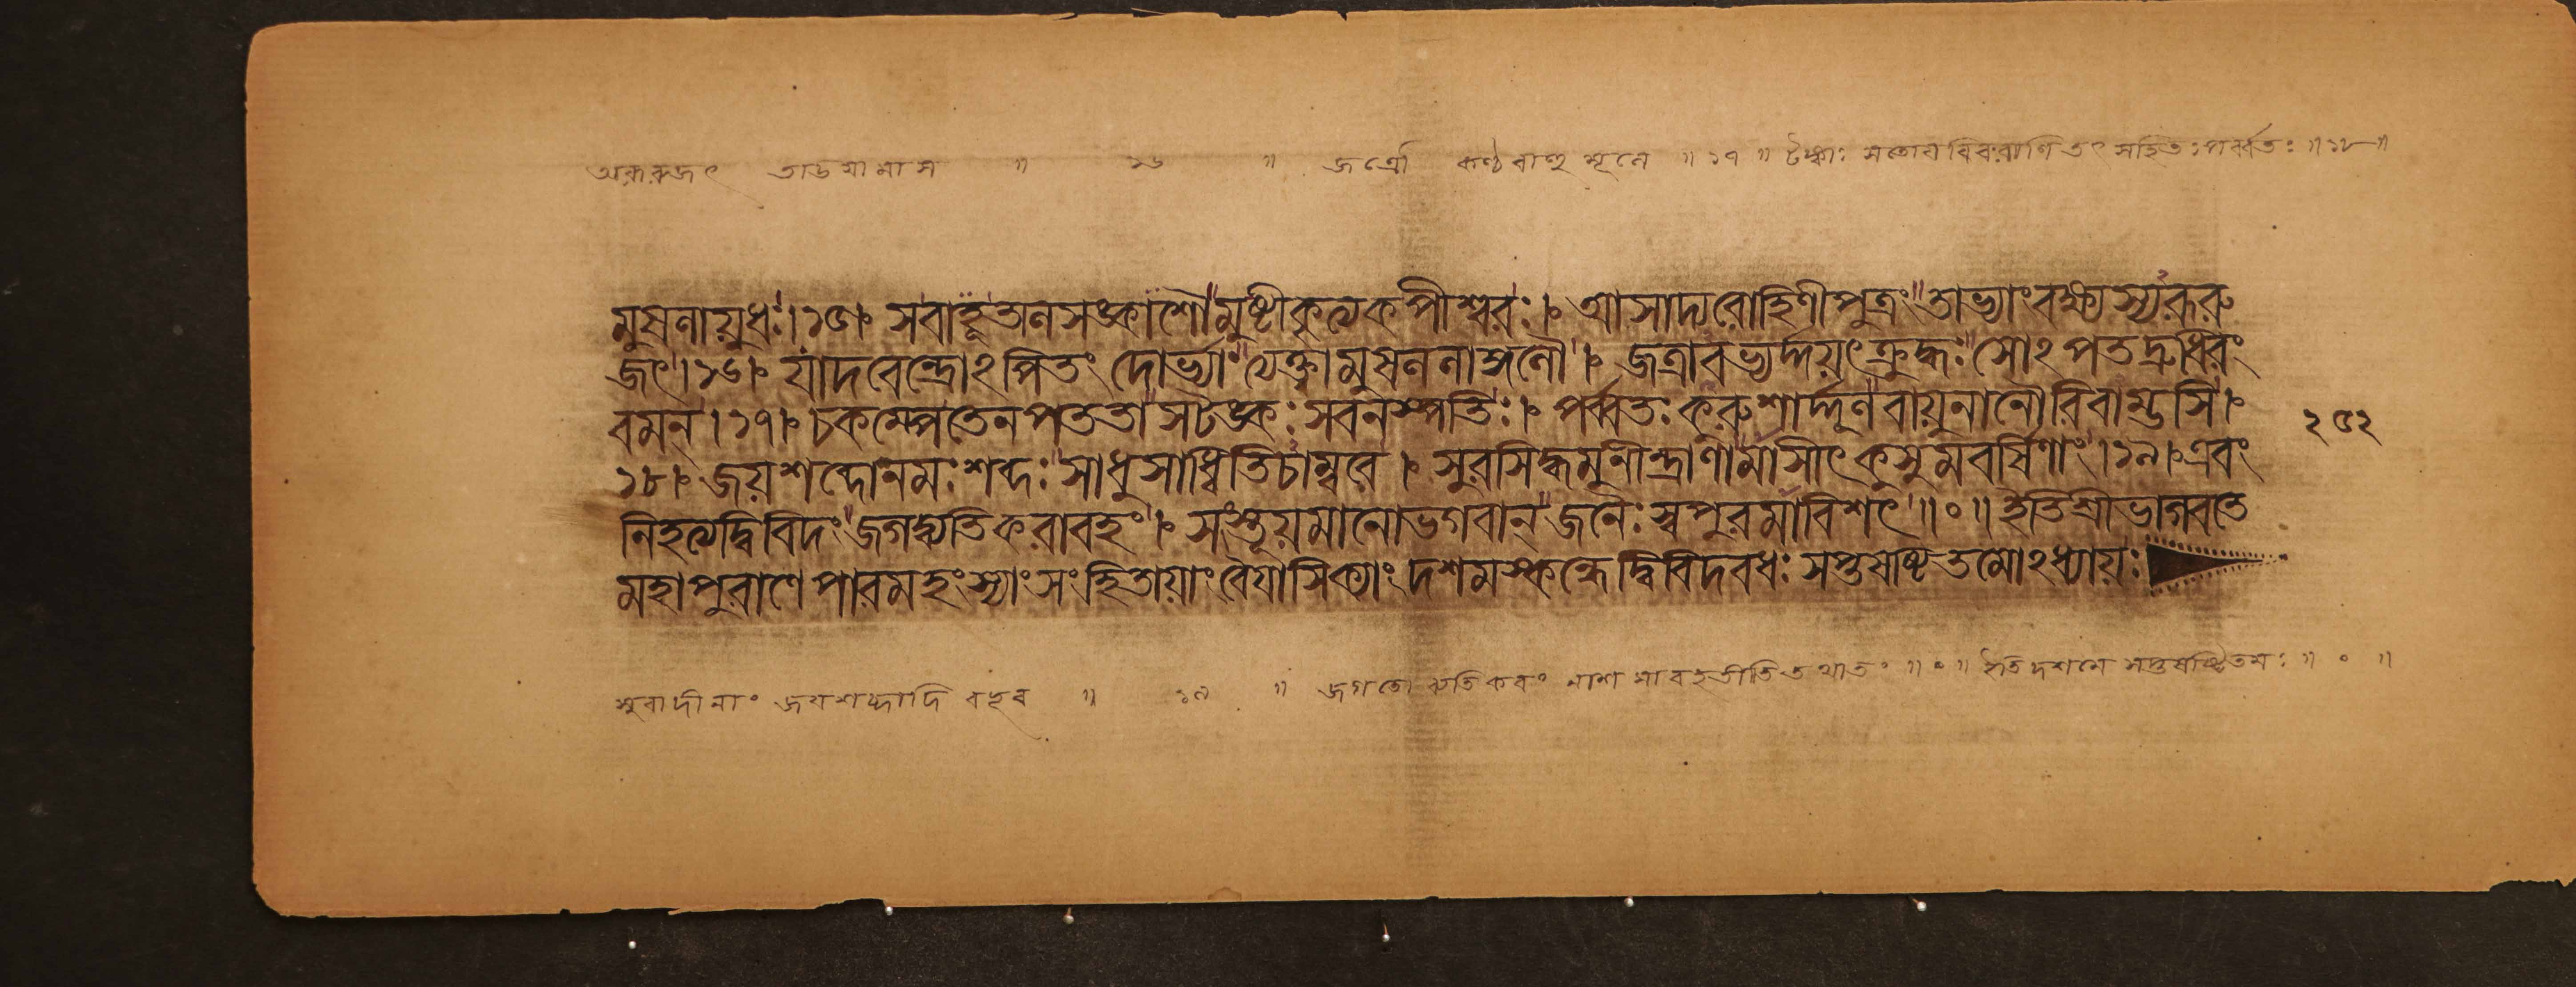 অরূরুজৎ তাডযামাস ॥ ১৬ ॥ জত্রৌ কণ্ঠবাহুমূলে ॥ ১৭ ॥ টঙ্কাঃ সতোযবিবরাণি তৎ সহিতঃ পর্ব্বতঃ ॥ ১৮ ॥
মুষলায়ুধঃ। ১৫। সবাহূতালসঙ্কাশৌ মুষ্টীকৃত্যকপীশ্বরঃ। আসাদ্যরোহিণীপুত্রং তাভ্যাংবক্ষ্যস্যরূরু
জৎ। ১৬। যাদবেন্দ্রোঽপিতং দোর্ভ্যাং ত্যক্ত্বামুষললাঙ্গলৌ। জত্রাবভ্যর্দ্দয়ৎক্রুদ্ধঃ সোঽপতদ্রুধিরং
বমন্। ১৭। চকম্পেতেনপততা সটঙ্কঃ সবনস্পতিঃ। পর্ব্বতঃ কুরুশার্দ্দূল বায়ুনানৌরিবাম্ভসি।
১৮। জয়শব্দোনমঃশব্দঃ সাধুসাধ্বিতিচাম্বরে। সুরসিদ্ধমুনীন্দ্রাণামাসীৎ কুসুমবর্ষিণাং। ১৯। এবং
নিহত্যদ্বিবিদং জগদ্ব্যতিকরাবহং। সংস্তূয়মানোভগবান্ জনৈঃ স্বপুরমাবিশৎ ॥ ০ ॥ ইতিশ্রীভাগবতে
মহাপুরাণে পারমহংস্যাং সংহিতায়াং বৈযাসিক্যাং দশমস্কন্ধে দ্বিবিদবধঃ সপ্তষষ্টিতমোঽধ্যায়ঃ
২৫২
সুরাদীনাং জযশব্দাদি বহুব ॥ ১৯ ॥ জগতো ব্যতিকরং নাশমাবহতীতি তথাতং ॥ ০ ॥ ইতি দশমে সপ্তষষ্টিতমঃ ॥ ০ ॥